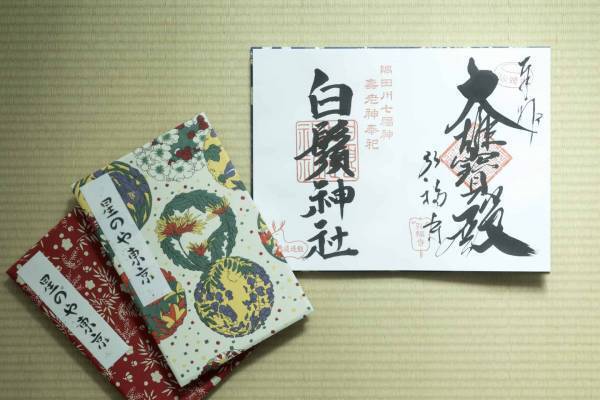 奉拝
大雄寳殿
弘福寺
隅田川七福神
寿老神奉祀
白鬚神社
星のや東京
星のや東京